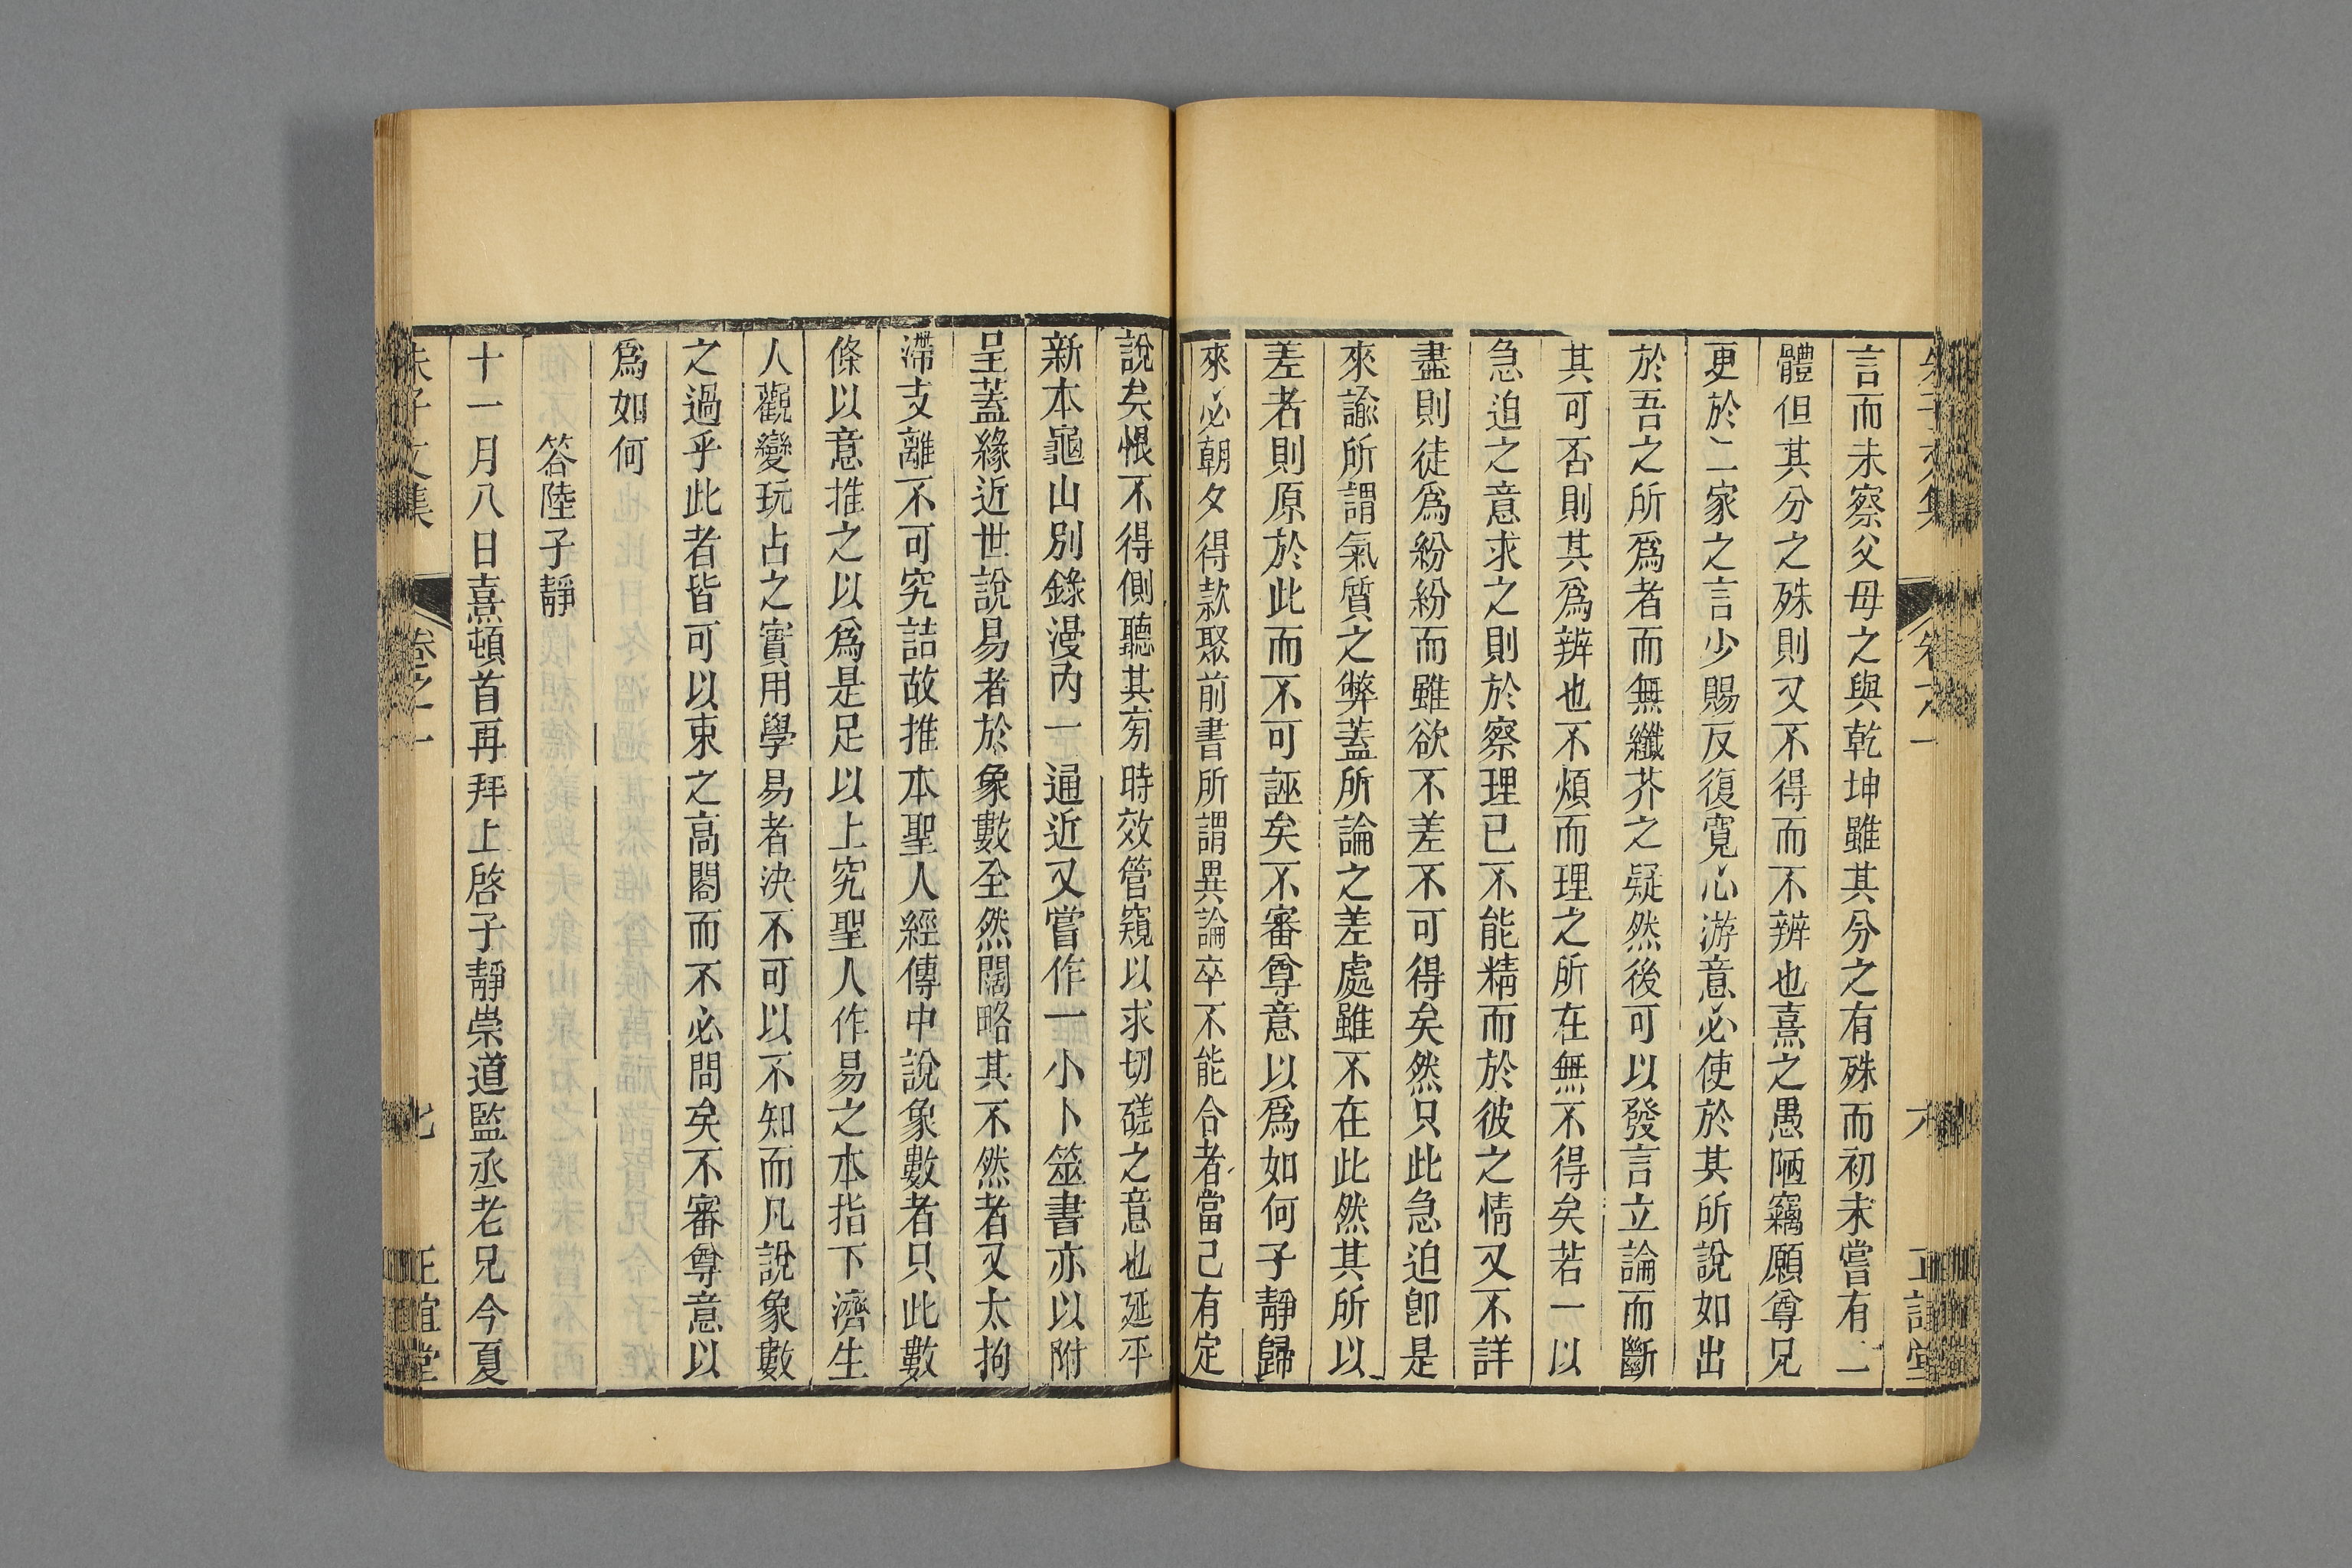 言而未察父母之與乾坤雖其分之有殊而初未嘗有二
體但其分之殊則又不得而不辨也熹之愚陋竊願尊兄
更於二家之言少賜反復寬心游意必使於其所說如出
於吾之所爲者而無纖芥之疑然後可以發言立論而斷
其可否則其爲辨也不煩而理之所在無不得矣若一以
急迫之意求之則於察理已不能精而於彼之情又不詳
盡則徒爲紛紛而雖欲不差不可得矣然只此急迫卽是
來諭所謂氣質之弊蓋所論之差處雖不在此然其所以
差者則原於此而不可誣矣不審尊意以爲如何子靜歸
來必朝夕得款聚前書所謂異論卒不能合者當已有定
說矣恨不得側聽其旁時效管窺以求切磋之意也延平
新本龜山別錄漫內一通近又嘗作一小卜筮書亦以附
呈蓋緣近世說易者於象數全然闊略其不然者又太拘
滯支離不可究詰故推本聖人經傳中說象數者只此數
條以意推之以爲是足以上究聖人作易之本指下濟生
人觀變玩占之實用學易者決不可以不知而凡說象數
之過乎此者皆可以束之高閣而不必問矣不審尊意以
爲如何
答陸子靜
十一月八日熹頓首再拜上啓子靜崇道監丞老兄今夏
朱子文集
卷之一